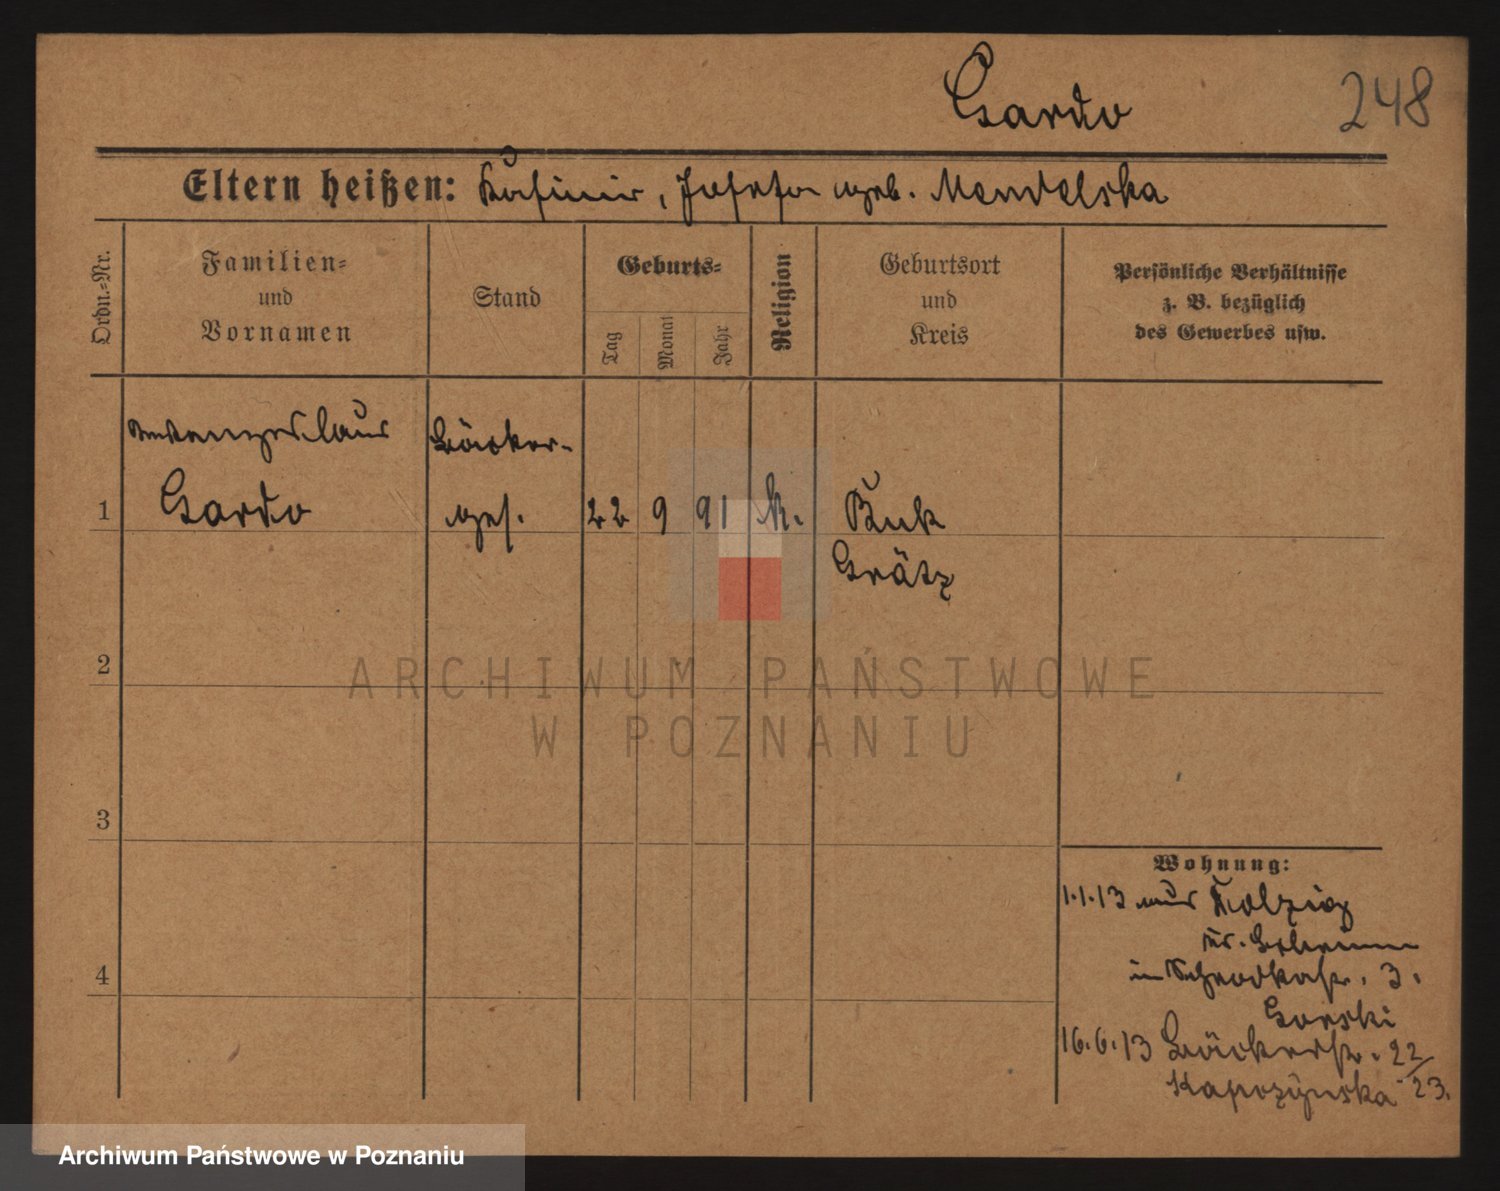 Gardo
248
Eltern heißen: Kasimir, Josefa geb. Mendelska
Ordn.-Nr.
Familien-
und
Vornamen
Stand
Geburts-
Tag
Monat
Jahr
Religion
Geburtsort
und
Kreis
Persönliche Verhältnisse
z. B. bezüglich
des Gewerbes usw.
Bäcker-
1 Gardo ges. 22 9 91 k. Buk
Grätz
2
3
4
Wohnung:
1.1.13 aus
in Schrodkastr. 3.
Gorski
16.6.13 Bäckerstr. 22/23.
ARCHIWUM PAŃSTWOWE
W POZNANIU
Archiwum Państwowe w Poznaniu